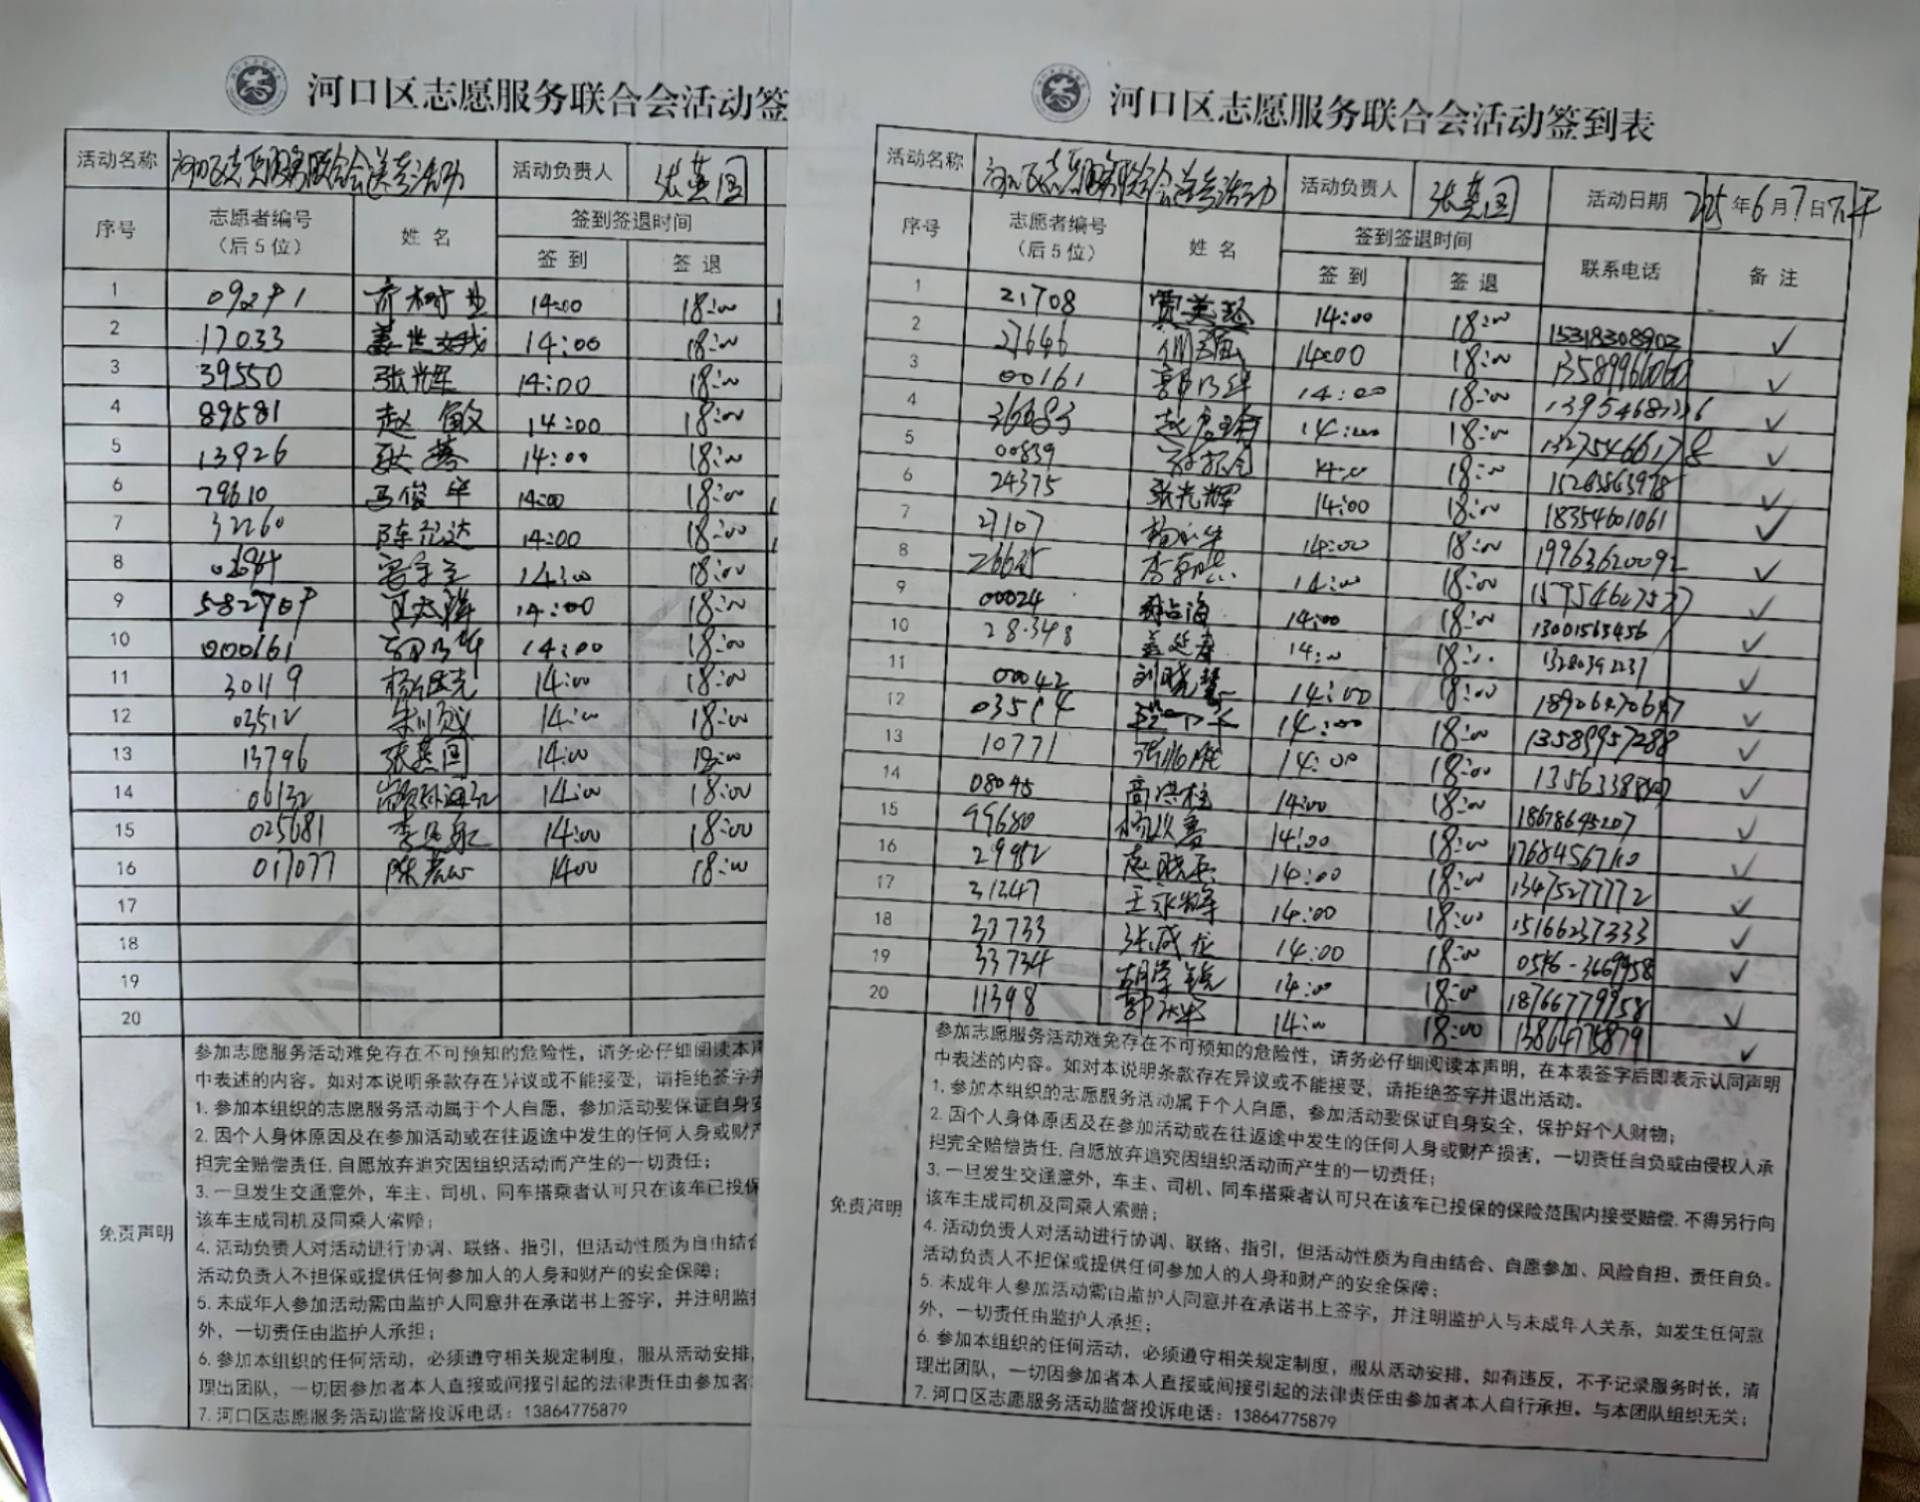 河口区志愿服务联合会活动签
活动名称 河口区志愿服务联合会送考活动 活动负责人 张燕国
序号 志愿者编号（后5位） 姓名 签到签退时间
签到 签退
1 09271 齐树业 14:00 18:00
2 17033 14:00 18:00
3 39550 张光辉 14:00 18:00
4 89581 赵敏 14:00 18:00
5 13926 耿 14:00 18:00
6 79610 马俊华 14:00 18:00
7 32260 陈 达 14:00 18:00
8 14:00 18:00
9 14:00 18:00
10 000161 14:00 18:00
11 30119 杨 14:00 18:00
12 03512 14:00 18:00
13 13796 张燕国 14:00 18:00
14 06132 14:00 18:00
15 025681 李 14:00 18:00
16 017077 陈 14:00 18:00
17
18
19
20
免责声明
参加志愿服务活动难免存在不可预知的危险性，请务必仔细阅读本声
中表述的内容。如对本说明条款存在异议或不能接受，请拒绝签字并
1. 参加本组织的志愿服务活动属于个人自愿，参加活动要保证自身安
2. 因个人身体原因及在参加活动或在往返途中发生的任何人身或财产
担完全赔偿责任,自愿放弃追究因组织活动而产生的一切责任；
3. 一旦发生交通意外，车主、司机、同车搭乘者认可只在该车已投保
该车主成司机及同乘人索赔；
4. 活动负责人对活动进行协调、联络、指引，但活动性质为自由结合
活动负责人不担保或提供任何参加人的人身和财产的安全保障；
5. 未成年人参加活动需由监护人同意并在承诺书上签字，并注明监护
外，一切责任由监护人承担；
6. 参加本组织的任何活动，必须遵守相关规定制度，服从活动安排，
理出团队，一切因参加者本人直接或间接引起的法律责任由参加者
7. 河口区志愿服务活动监督投诉电话：13864775879
河口区志愿服务联合会活动签到表
活动名称 河口区志愿服务联合会送考活动 活动负责人 张燕国 活动日期 2025年6月7日下午
序号 志愿者编号（后5位） 姓名 签到签退时间 联系电话 备注
签到 签退
1 21708 贾美 14:00 18:00 15318308902 ✓
2 27646 14:00 18:00 ✓
3 00161 14:00 18:00 ✓
4 14:00 18:00 13275466178 ✓
5 00839 14:00 18:00 ✓
6 24375 张光辉 14:00 18:00 18354601061 ✓
7 27107 杨 华 14:00 18:00 19963620092 ✓
8 李 14:00 18:00 15795462757 ✓
9 00024 占海 14:00 18:00 13001565456 ✓
10 28348 姜延 14:00 18:00 13280392237 ✓
11 00042 刘晓慧 14:00 18:00 ✓
12 03514 14:00 18:00 13589957288 ✓
13 10771 张 胜 14:00 18:00 ✓
14 08045 高洪柱 14:00 18:00 18678645207 ✓
15 99680 杨 14:00 18:00 17684567110 ✓
16 29952 赵晓 14:00 18:00 13475277772 ✓
17 31247 王永 14:00 18:00 15166237333 ✓
18 33733 张成龙 14:00 18:00 0546-3669958 ✓
19 33734 胡学 14:00 18:00 18766779958 ✓
20 11398 郭 14:00 18:00 13864775879 ✓
免责声明
参加志愿服务活动难免存在不可预知的危险性，请务必仔细阅读本声明，在本表签字后即表示认同声明
中表述的内容。如对本说明条款存在异议或不能接受，请拒绝签字并退出活动。
1. 参加本组织的志愿服务活动属于个人自愿，参加活动要保证自身安全，保护好个人财物；
2. 因个人身体原因及在参加活动或在往返途中发生的任何人身或财产损害，一切责任自负或由侵权人承
担完全赔偿责任,自愿放弃追究因组织活动而产生的一切责任；
3. 一旦发生交通意外，车主、司机、同车搭乘者认可只在该车已投保的保险范围内接受赔偿,不得另行向
该车主成司机及同乘人索赔；
4. 活动负责人对活动进行协调、联络、指引，但活动性质为自由结合、自愿参加、风险自担、责任自负。
活动负责人不担保或提供任何参加人的人身和财产的安全保障；
5. 未成年人参加活动需由监护人同意并在承诺书上签字，并注明监护人与未成年人关系，如发生任何意
外，一切责任由监护人承担；
6. 参加本组织的任何活动，必须遵守相关规定制度，服从活动安排，如有违反，不予记录服务时长，清
理出团队，一切因参加者本人直接或间接引起的法律责任由参加者本人自行承担。与本团队组织无关；
7. 河口区志愿服务活动监督投诉电话：13864775879